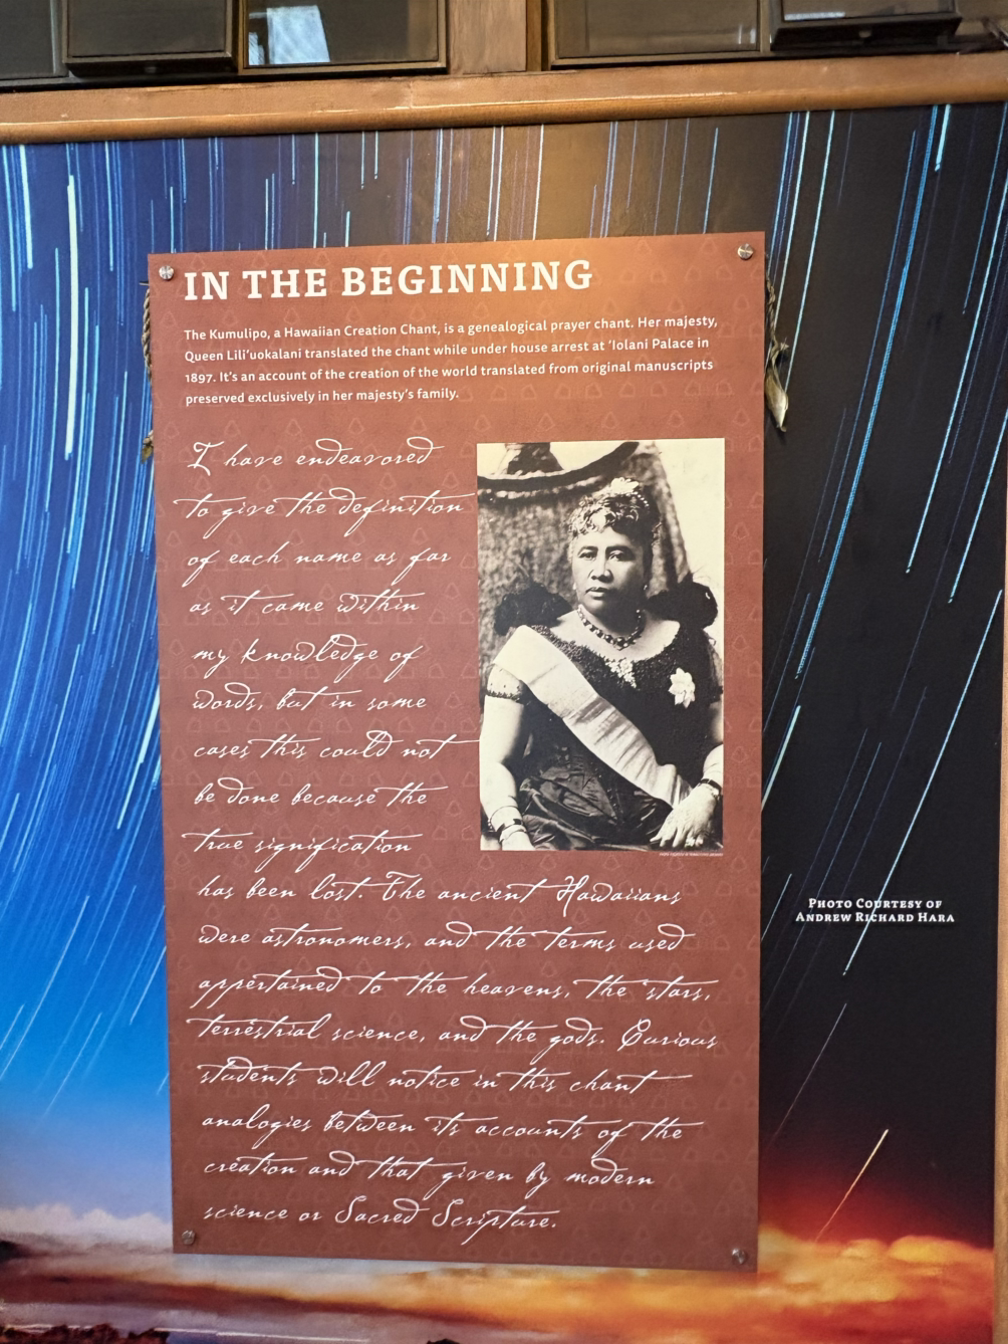 IN THE BEGINNING
The Kumulipo, a Hawaiian Creation Chant, is a genealogical prayer chant. Her majesty,
Queen Lili'uokalani translated the chant while under house arrest at 'Iolani Palace in
1897. It's an account of the creation of the world translated from original manuscripts
preserved exclusively in her majesty's family.
I have endeavored
to give the definition
of each name as far
as it came within
my knowledge of
words, but in some
cases this could not
be done because the
true signification
has been lost. The ancient Hawaiians
were astronomers, and the terms used
appertained to the heavens, the stars,
terrestrial science, and the gods. Curious
students will notice in this chant
analogies between its accounts of the
creation and that given by modern
science or Sacred Scripture.
PHOTO COURTESY OF
ANDREW RICHARD HARA